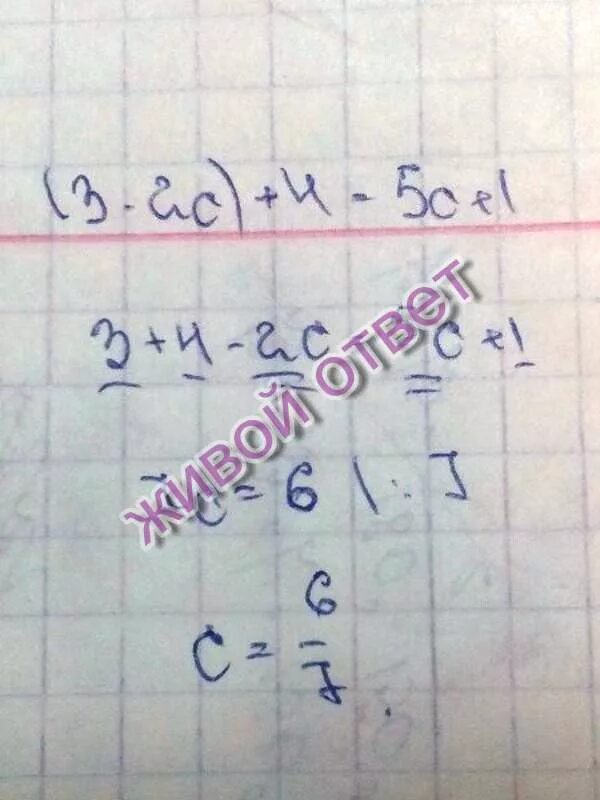 (3 - 2c) + 4 = 5c + 1
3 + 4 - 2c c + 1
c = 6 | : 7
c = 6/7
ЖИВОЙ ОТВЕТ